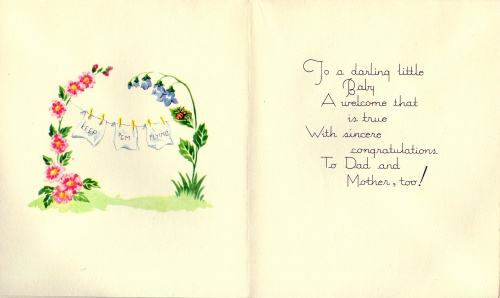 KEEP
'EM
To a darling little
Baby
A welcome that
is true
With sincere
congratulations
To Dad and
Mother, too!